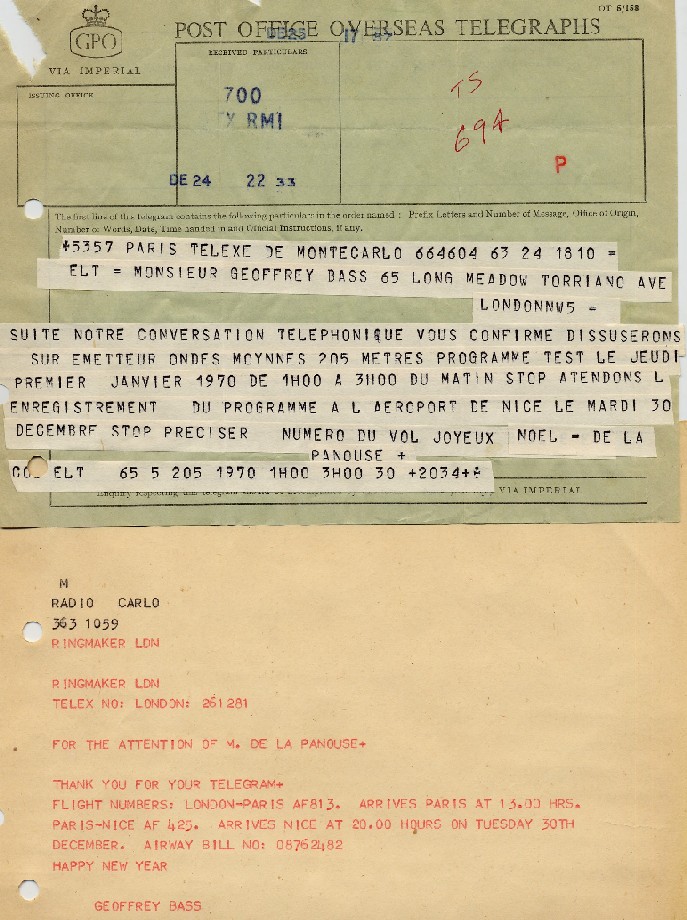 OT 5/153
GPO
POST OFFICE OVERSEAS TELEGRAPHS
VIA IMPERIAL
RECEIVED PARTICULARS
ISSUING OFFICE
700
RMI
TS
69A
P
DE 24 22 33
The first line of this telegram contains the following particulars in the order named : Prefix Letters and Number of Message, Office of Origin,
Number of Words, Date, Time handed in and Official Instructions, if any.
+5357 PARIS TELEXE DE MONTECARLO 664604 63 24 1810 =
ELT = MONSIEUR GEOFFREY BASS 65 LONG MEADOW TORRIANO AVE
LONDONNW5 =
SUITE NOTRE CONVERSATION TELEPHONIQUE VOUS CONFIRME DISSUSERONS
SUR EMETTEUR ONDES MOYNNES 205 METRES PROGRAMME TEST LE JEUDI
PREMIER JANVIER 1970 DE 1H00 A 3H00 DU MATIN STOP ATENDONS L
ENREGISTREMENT DU PROGRAMME A L AEROPORT DE NICE LE MARDI 30
DECEMBRE STOP PRECISER NUMERO DU VOL JOYEUX NOEL = DE LA
PANOUSE +
ELT 65 5 205 1970 1H00 3H00 30 +2034+A
Enquiry respecting this telegram VIA IMPERIAL
M
RADIO CARLO
363 1059
RINGMAKER LDN
RINGMAKER LDN
TELEX NO: LONDON: 261281
FOR THE ATTENTION OF M. DE LA PANOUSE+
THANK YOU FOR YOUR TELEGRAM+
FLIGHT NUMBERS: LONDON-PARIS AF813. ARRIVES PARIS AT 13.00 HRS.
PARIS-NICE AF 425. ARRIVES NICE AT 20.00 HOURS ON TUESDAY 30TH
DECEMBER. AIRWAY BILL NO: 08762482
HAPPY NEW YEAR
GEOFFREY BASS